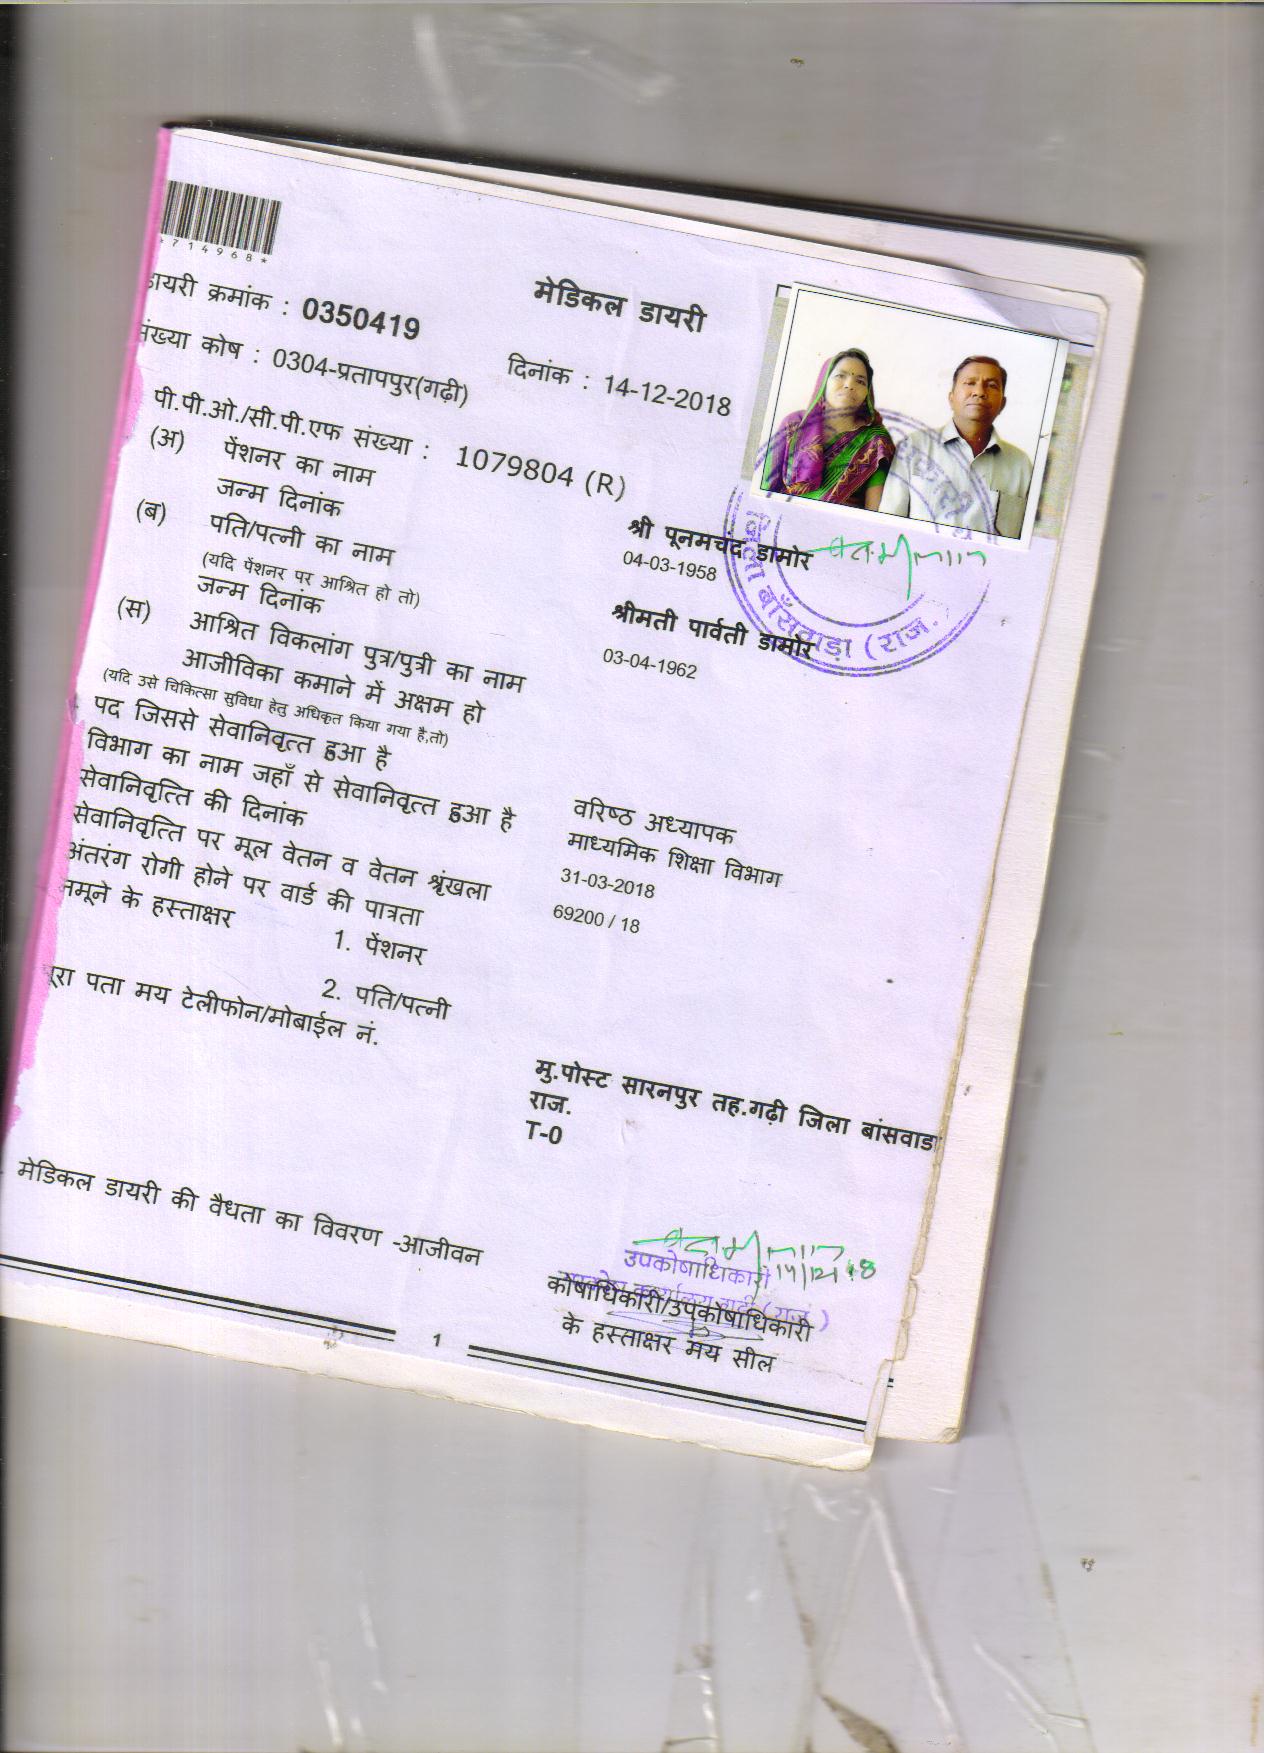 *714968*
मेडिकल डायरी
डायरी क्रमांक : 0350419
संख्या कोष : 0304-प्रतापपुर(गढ़ी)
दिनांक : 14-12-2018
पी.पी.ओ./सी.पी.एफ संख्या : 1079804 (R)
(अ) पेंशनर का नाम श्री पूनमचंद डामोर
जन्म दिनांक 04-03-1958
(ब) पति/पत्नी का नाम श्रीमती पार्वती डामोर
(यदि पेंशनर पर आश्रित हो तो)
जन्म दिनांक 03-04-1962
(स) आश्रित विकलांग पुत्र/पुत्री का नाम
आजीविका कमाने में अक्षम हो
(यदि उसे चिकित्सा सुविधा हेतु अधिकृत किया गया है,तो)
पद जिससे सेवानिवृत्त हुआ है वरिष्ठ अध्यापक
विभाग का नाम जहाँ से सेवानिवृत्त हुआ है माध्यमिक शिक्षा विभाग
सेवानिवृत्ति की दिनांक 31-03-2018
सेवानिवृत्ति पर मूल वेतन व वेतन श्रृंखला 69200 / 18
अंतरंग रोगी होने पर वार्ड की पात्रता
नमूने के हस्ताक्षर
1. पेंशनर
2. पति/पत्नी
पूरा पता मय टेलीफोन/मोबाईल नं.
मु.पोस्ट सारनपुर तह.गढ़ी जिला बांसवाडा
राज.
T-0
जिला बाँसवाड़ा (राज.)
मेडिकल डायरी की वैधता का विवरण -आजीवन
14/12/18
उपकोषाधिकारी
कोषाधिकारी/उपकोषाधिकारी
के हस्ताक्षर मय सील
1